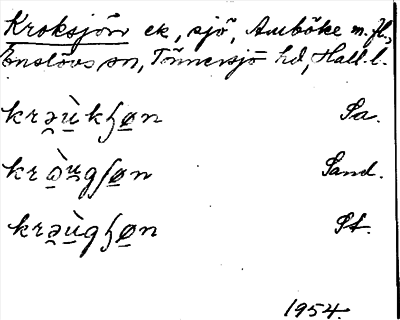 Kroksjön ek, sjö, Amböke m.fl.,
Enslövs sn, Tönnersjö hd, Hall. l.
krə̯ù̯kɧø̠n Sa.
krə̯̀u̯gʃø̠n Sand.
krə̯ù̯gɧø̠n St.
1954.